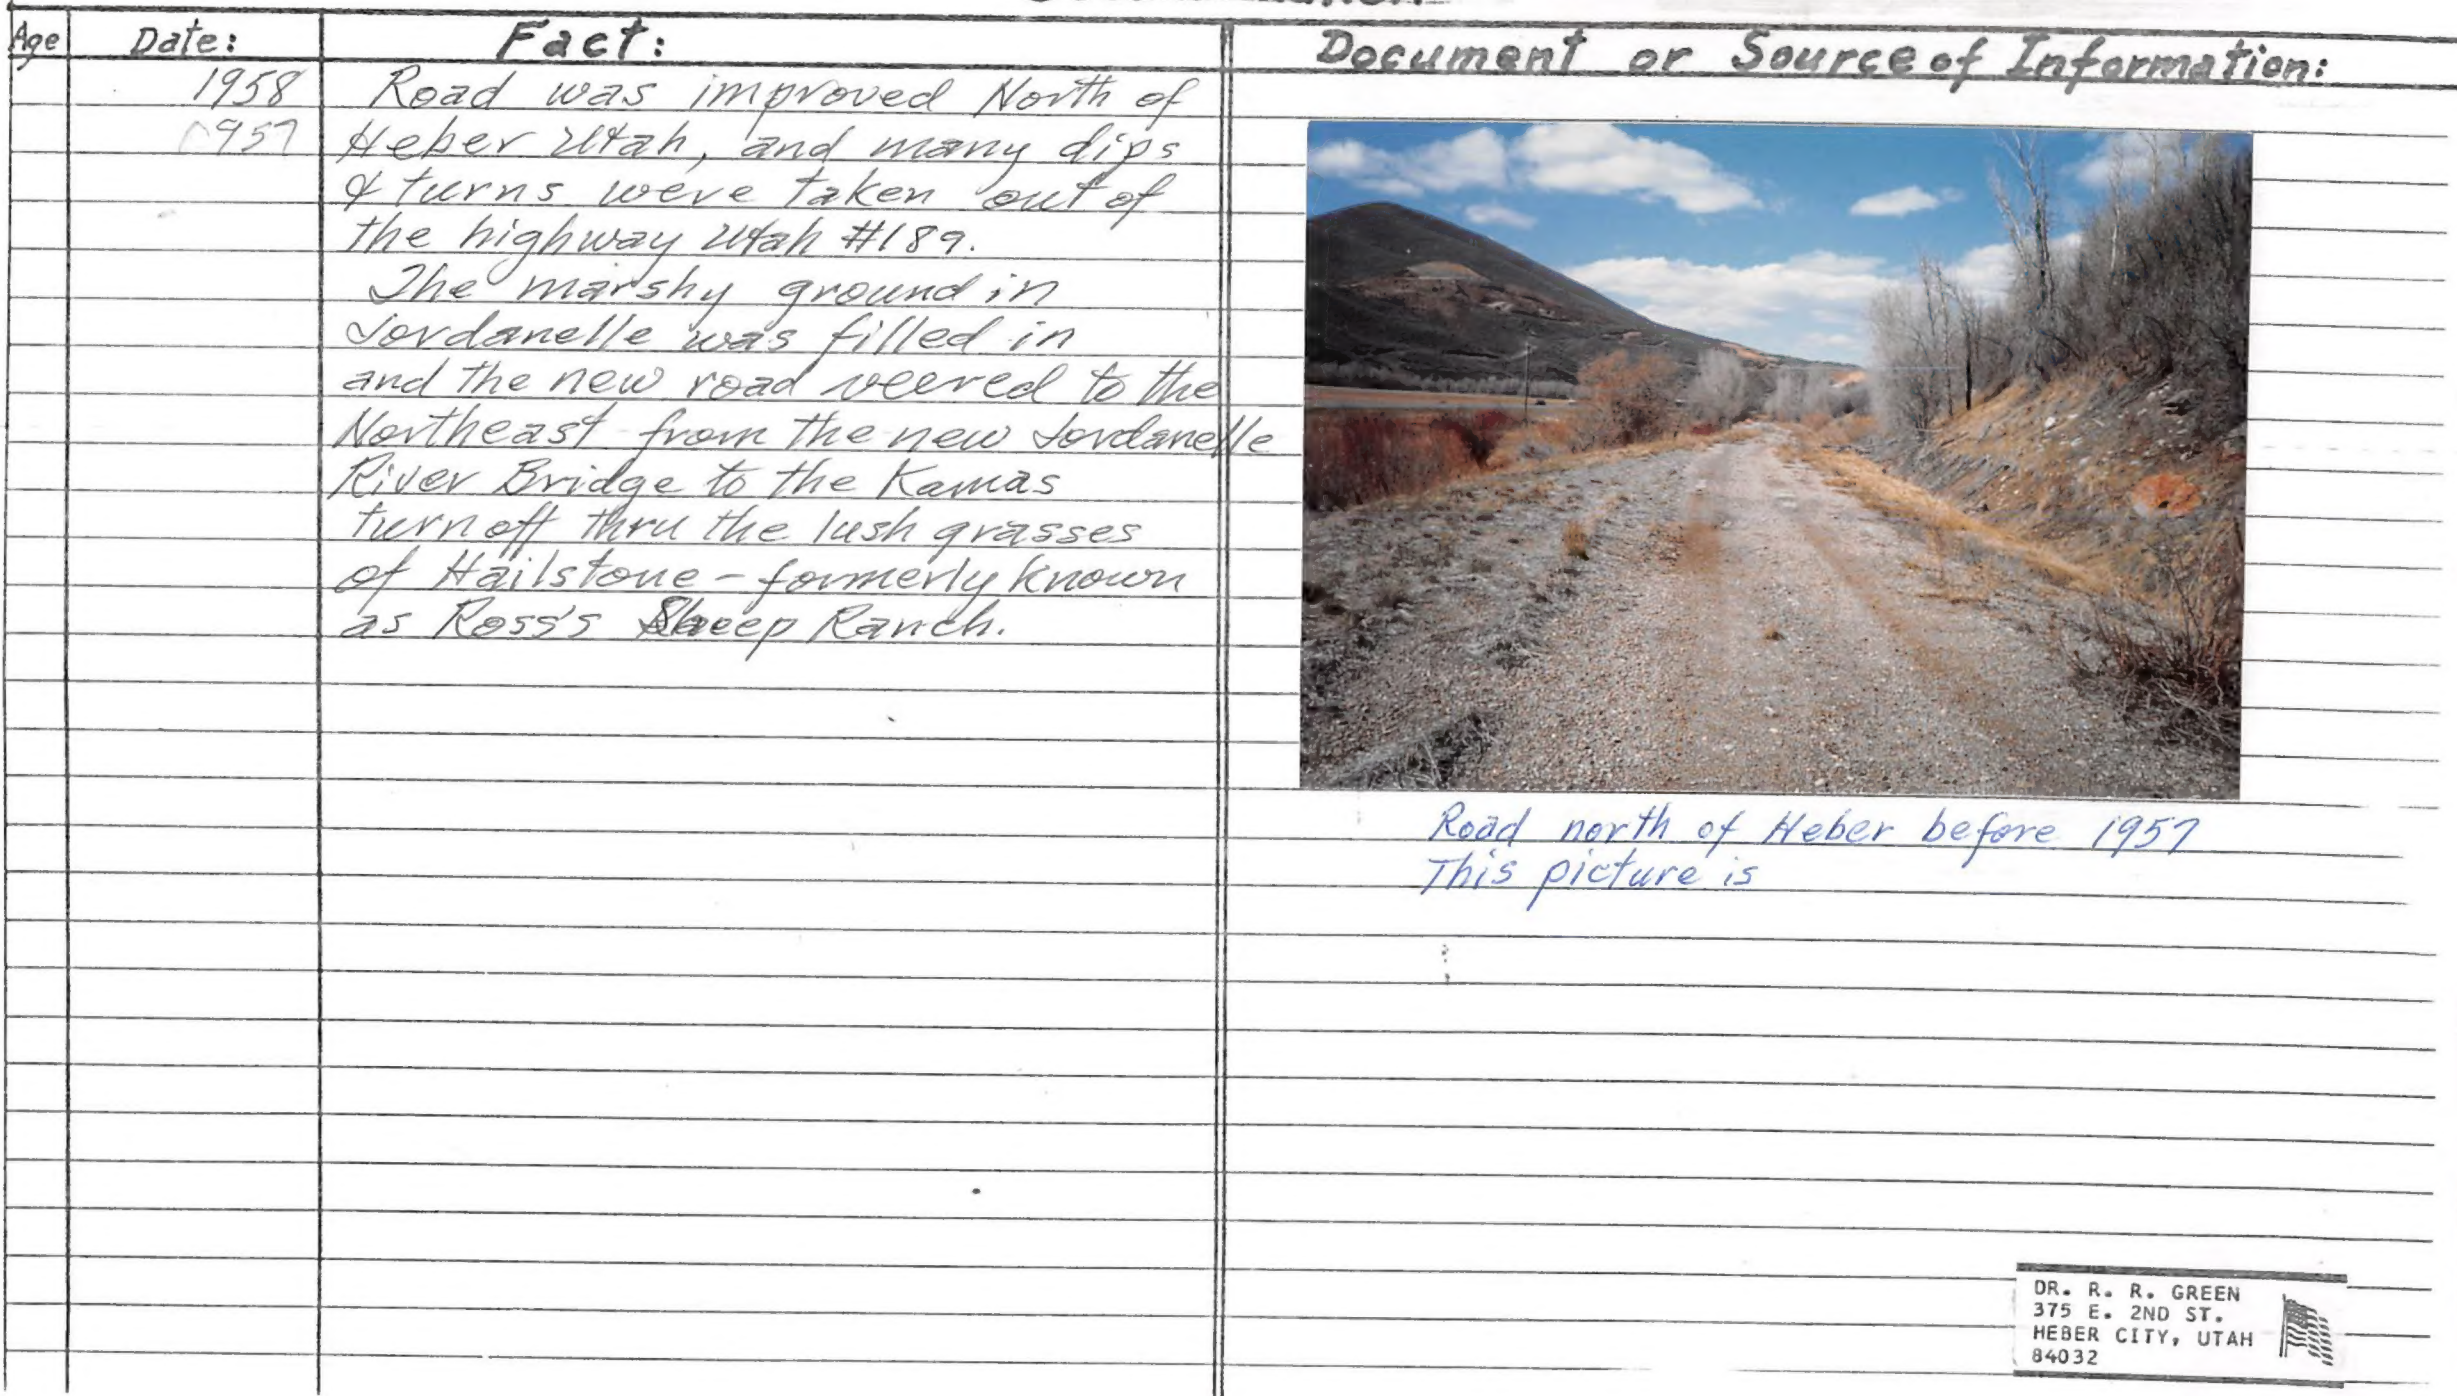 Age Date: Fact: Document or Source of Information:
1958 Road was improved North of
1957 Heber Utah, and many dips
& turns were taken out of
the highway Utah #189.
The marshy ground in
Jordanelle was filled in
and the new road veered to the
Northeast from the new Jordanelle
River Bridge to the Kamas
turnoff thru the lush grasses
of Hailstone - formerly known
as Ross's Sheep Ranch.
Road north of Heber before 1957
This picture is
DR. R. R. GREEN
375 E. 2ND ST.
HEBER CITY, UTAH
84032